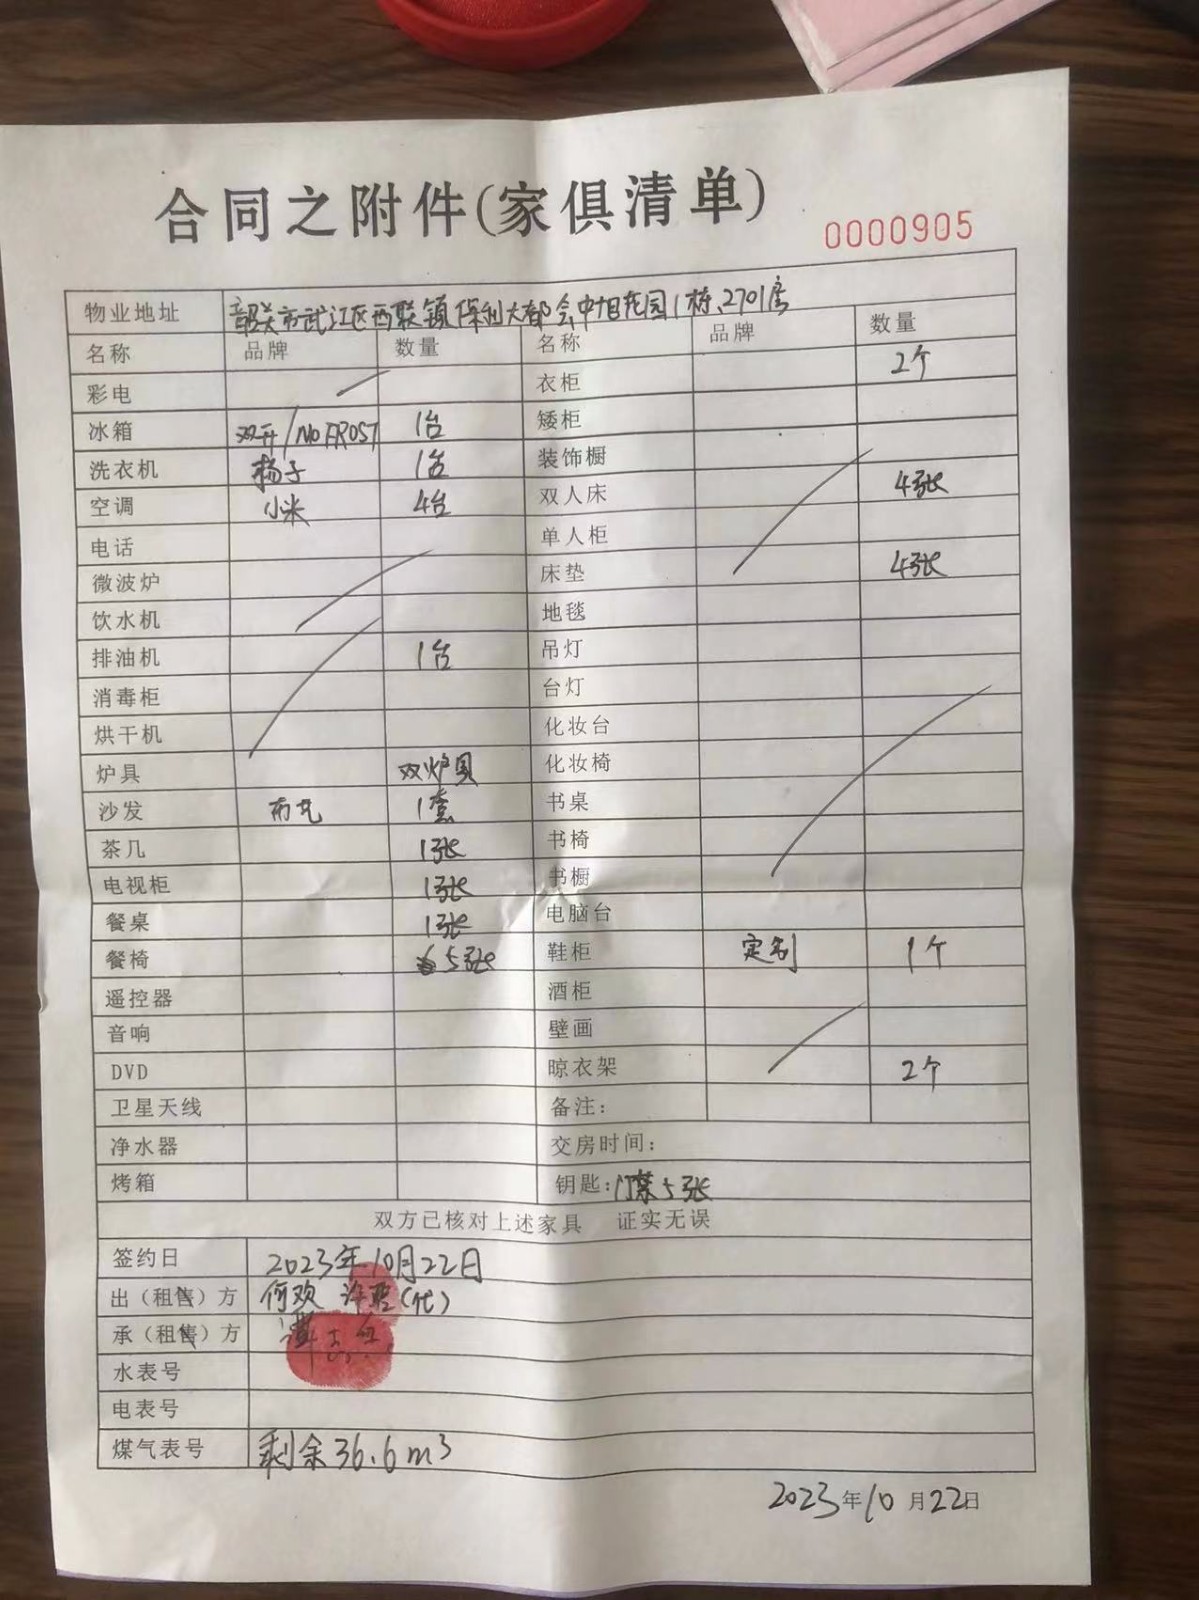 合同之附件(家俱清单)
0000905
物业地址 韶关市武江区西联镇保利大都会中旭花园1栋、2701房
名称 品牌 数量 名称 品牌 数量
彩电 衣柜 2个
冰箱 双开/NO FROST 1台 矮柜
洗衣机 扬子 1台 装饰橱
空调 小米 4台 双人床 4张
电话 单人柜
微波炉 床垫 4张
饮水机 地毯
排油机 1台 吊灯
消毒柜 台灯
烘干机 化妆台
炉具 双炉具 化妆椅
沙发 布艺 1套 书桌
茶几 1张 书椅
电视柜 1张 书橱
餐桌 1张 电脑台
餐椅 5张 鞋柜 定制 1个
遥控器 酒柜
音响 壁画
DVD 晾衣架 2个
卫星天线 备注:
净水器 交房时间:
烤箱 钥匙:门禁5张
双方已核对上述家具 证实无误
签约日 2023年10月22日
出(租售)方 何欢 (代)
承(租售)方 谭
水表号
电表号
煤气表号 剩余36.6m³
2023年10月22日